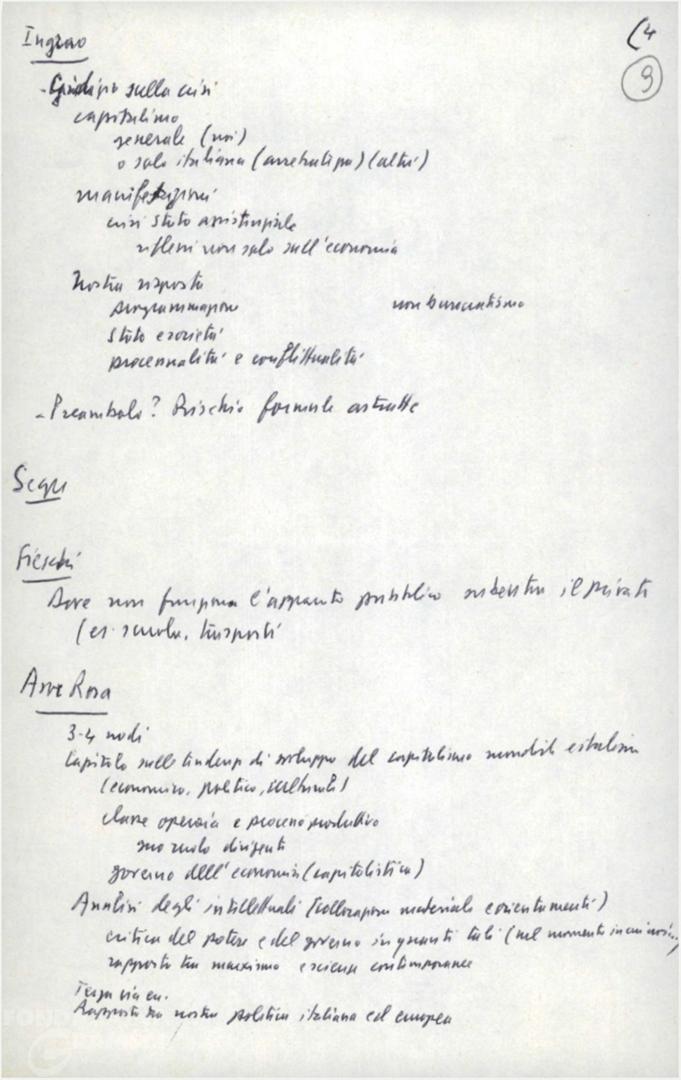 (4
9
Ingrao
- Giudizio sulla crisi
capitalismo
generale (noi)
o solo italiana (arretratezza) (altri)
manifestazioni
crisi Stato assistenziale
riflessi non solo sull'economia
Nostra risposta
programmazione non burocratismo
Stato e società
processualità e conflittualità
- Preambolo? Rischio formule astratte
Segre
Fieschi
Dove non funziona l'apparato pubblico subentra il privato
(es. scuola, trasporti
Asor Rosa
3-4 nodi
Capitolo sulle tendenze di sviluppo del capitalismo mondiale e italiano
(economico, politico, culturale)
classe operaia e processo produttivo
suo ruolo dirigente
governo dell'economia (capitalistica)
Analisi degli intellettuali (collocazione materiale e orientamenti)
critica del potere e del governo in quanti tali (nel momento in cui
rapporto tra marxismo e scienza contemporanea
Terza via
Rapporto tra nostra politica italiana ed europea
FOND
G